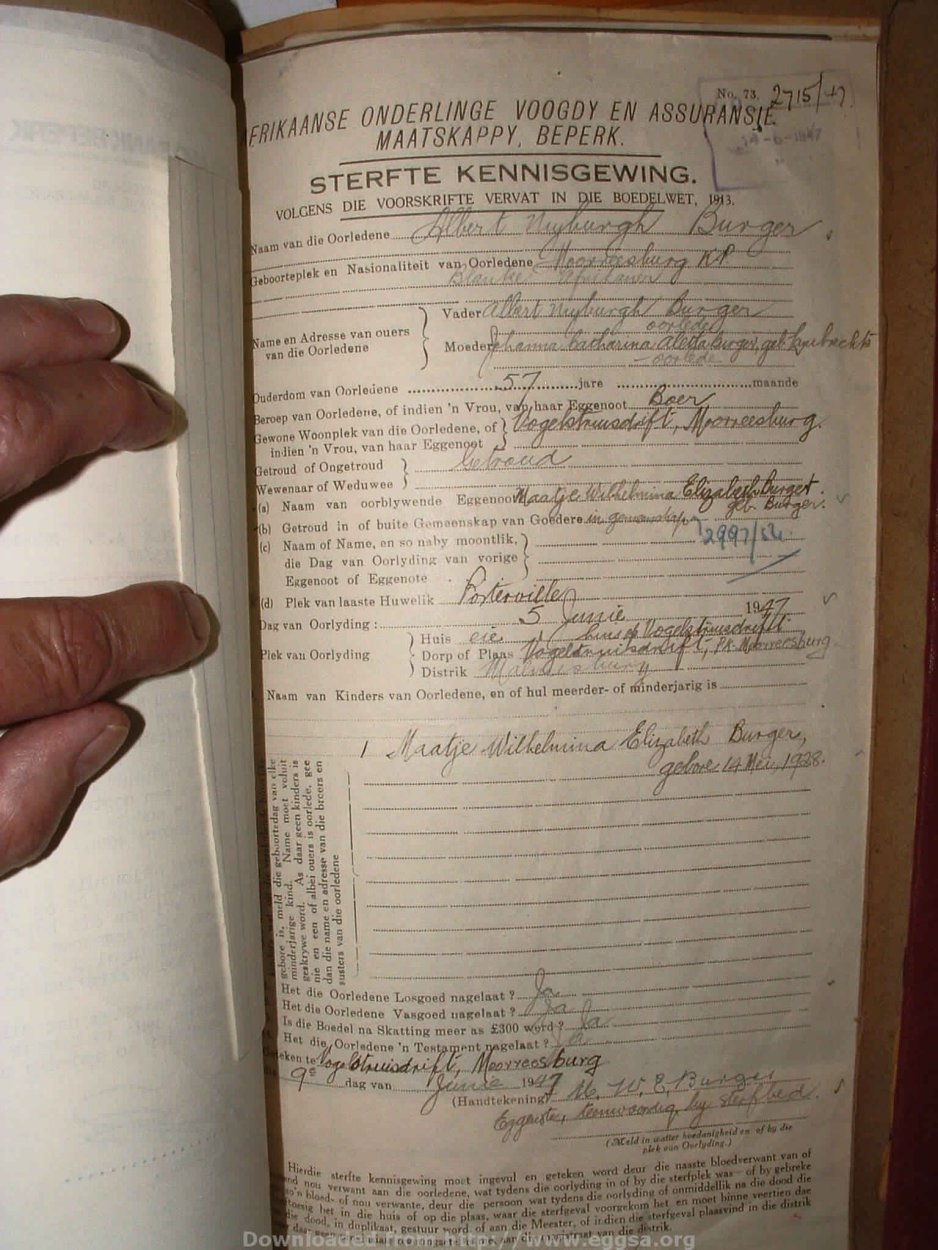 No. 73. 2715/47
AFRIKAANSE ONDERLINGE VOOGDY EN ASSURANSIE
MAATSKAPPY, BEPERK.
STERFTE KENNISGEWING.
VOLGENS DIE VOORSKRIFTE VERVAT IN DIE BOEDELWET, 1913.
Naam van die Oorledene Albert Myburgh Burger
Geboorteplek en Nasionaliteit van Oorledene Moorreesburg K.P.
Blanke Afrikaner
Name en Adresse van ouers van die Oorledene
Vader Albert Myburgh Burger
oorlede
Moeder Johanna Catharina Aletta Burger, geb.
oorlede
Ouderdom van Oorledene 57 jare maande
Beroep van Oorledene, of indien 'n Vrou, van haar Eggenoot Boer
Gewone Woonplek van die Oorledene, of indien 'n Vrou, van haar Eggenoot Vogelstruisdrift, Moorreesburg.
Getroud of Ongetroud
Wewenaar of Weduwee
Getroud
(a) Naam van oorblywende Eggenoot Maatje Wilhelmina Elizabeth Burger
geb. Burger.
(b) Getroud in of buite Gemeenskap van Goedere in gemeenskap
(c) Naam of Name, en so naby moontlik,
die Dag van Oorlyding van vorige
Eggenoot of Eggenote
(d) Plek van laaste Huwelik Porterville
Dag van Oorlyding: 5 Junie 1947
Plek van Oorlyding
Huis eie huis op Vogelstruisdrift
Dorp of Plaas Vogelstruisdrift, PK. Moorreesburg
Distrik Malmesbury
Naam van Kinders van Oorledene, en of hul meerder- of minderjarig is
1 Maatje Wilhelmina Elizabeth Burger,
gebore 14 Mei 1928.
gebore is, meld die geboortedag van elke
minderjarige kind. Name moet voluit
geskrywe word. As daar geen kinders is
nie en een of albei ouers is oorlede, gee
dan die name en adresse van die broers en
susters van die oorledene
Het die Oorledene Losgoed nagelaat? Ja
Het die Oorledene Vasgoed nagelaat? Ja
Is die Boedel na Skatting meer as £300 werd? Ja
Het die Oorledene 'n Testament nagelaat? Ja
Geteken te Vogelstruisdrift, Moorreesburg
9e dag van Junie 1947
(Handtekening) M. W. E. Burger
Eggenote, teenwoordig by sterfbed.
(Meld in watter hoedanigheid en of by die
plek van Oorlyding.)
Hierdie sterfte kennisgewing moet ingevul en geteken word deur die naaste bloedverwant van of
nou verwant aan die oorledene, wat tydens die oorlyding in of by die sterfplek was—of by gebreke
so'n bloed- of nou verwante, deur die persoon wat tydens die oorlyding of onmiddellik na die dood die
toesig het in die huis of op die plaas, waar die sterfgeval voorgekom het en moet binne veertien dae
die dood, in duplikaat, gestuur word of aan die Meester, of indien die sterfgeval plaasvind in die distrik
van die distrik.
Downloaded from http://www.eggsa.org